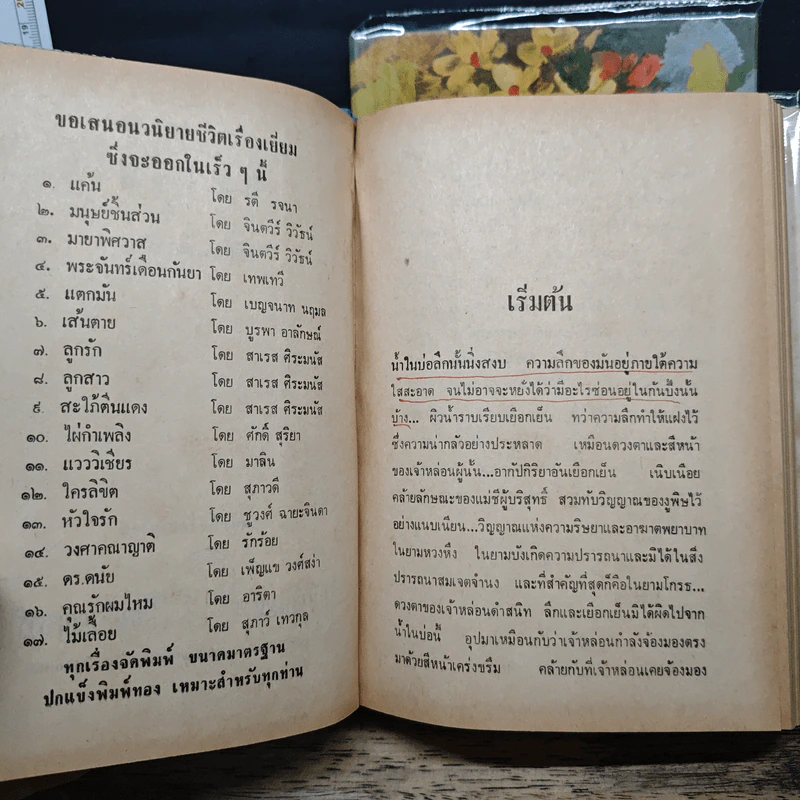 ขอเสนอนวนิยายชีวิตเรื่องเยี่ยม
ซึ่งจะออกในเร็ว ๆ นี้
๑. แค้น โดย รตี รจนา
๒. มนุษย์ชิ้นส่วน โดย จินตวีร์ วิวัธน์
๓. มายาพิศวาส โดย จินตวีร์ วิวัธน์
๔. พระจันทร์เดือนกันยา โดย เทพเทวี
๕. แตกมัน โดย เบญจนาท นฤมล
๖. เส้นตาย โดย บูรพา อาลักษณ์
๗. ลูกรัก โดย สาเรส ศิระมนัส
๘. ลูกสาว โดย สาเรส ศิระมนัส
๙. สะใภ้ตีนแดง โดย สาเรส ศิระมนัส
๑๐. ไผ่กำเพลิง โดย ศักดิ์ สุริยา
๑๑. แววิเชียร โดย มาลิน
๑๒. ใครลิขิต โดย สุภาวดี
๑๓. หัวใจรัก โดย ชูวงศ์ ฉายะจินดา
๑๔. วงศาคณาญาติ โดย รักร้อย
๑๕. ดร.ดนัย โดย เพ็ญแข วงศ์สง่า
๑๖. คุณรักผมไหม โดย อาริตา
๑๗. ไม้เลื้อย โดย สุภาว์ เทวกุล
ทุกเรื่องจัดพิมพ์ ขนาดมาตรฐาน
ปกแข็งพิมพ์ทอง เหมาะสำหรับทุกท่าน
เริ่มต้น
น้ำในบ่อลึกนั้นนิ่งสงบ ความลึกของมันอยู่ภายใต้ความ
ใสสะอาด จนไม่อาจจะหยั่งได้ว่ามีอะไรซ่อนอยู่ในก้นบึ้งนั้น
บ้าง... ผิวน้ำราบเรียบเยือกเย็น ทว่าความลึกทำให้แฝงไว้
ซึ่งความน่ากลัวอย่างประหลาด เหมือนดวงตาและสีหน้า
ของเจ้าหล่อนผู้นั้น...อากัปกิริยาอันเยือกเย็น เนิบเนือย
คล้ายลักษณะของแม่ชีผู้บริสุทธิ์ สวมทับวิญญาณของงูพิษไว้
อย่างแนบเนียน...วิญญาณแห่งความริษยาและอาฆาตพยาบาท
ในยามหวงหึง ในยามบังเกิดความปรารถนาและมิได้ในสิ่ง
ปรารถนาสมเจตจำนง และที่สำคัญที่สุดก็คือในยามโกรธ...
ดวงตาของเจ้าหล่อนดำสนิท ลึกและเยือกเย็นมิได้ผิดไปจาก
น้ำในบ่อนี้ อุปมาเหมือนกับว่าเจ้าหล่อนกำลังจ้องมองตรง
มาด้วยสีหน้าเคร่งขรึม คล้ายกับที่เจ้าหล่อนเคยจ้องมอง